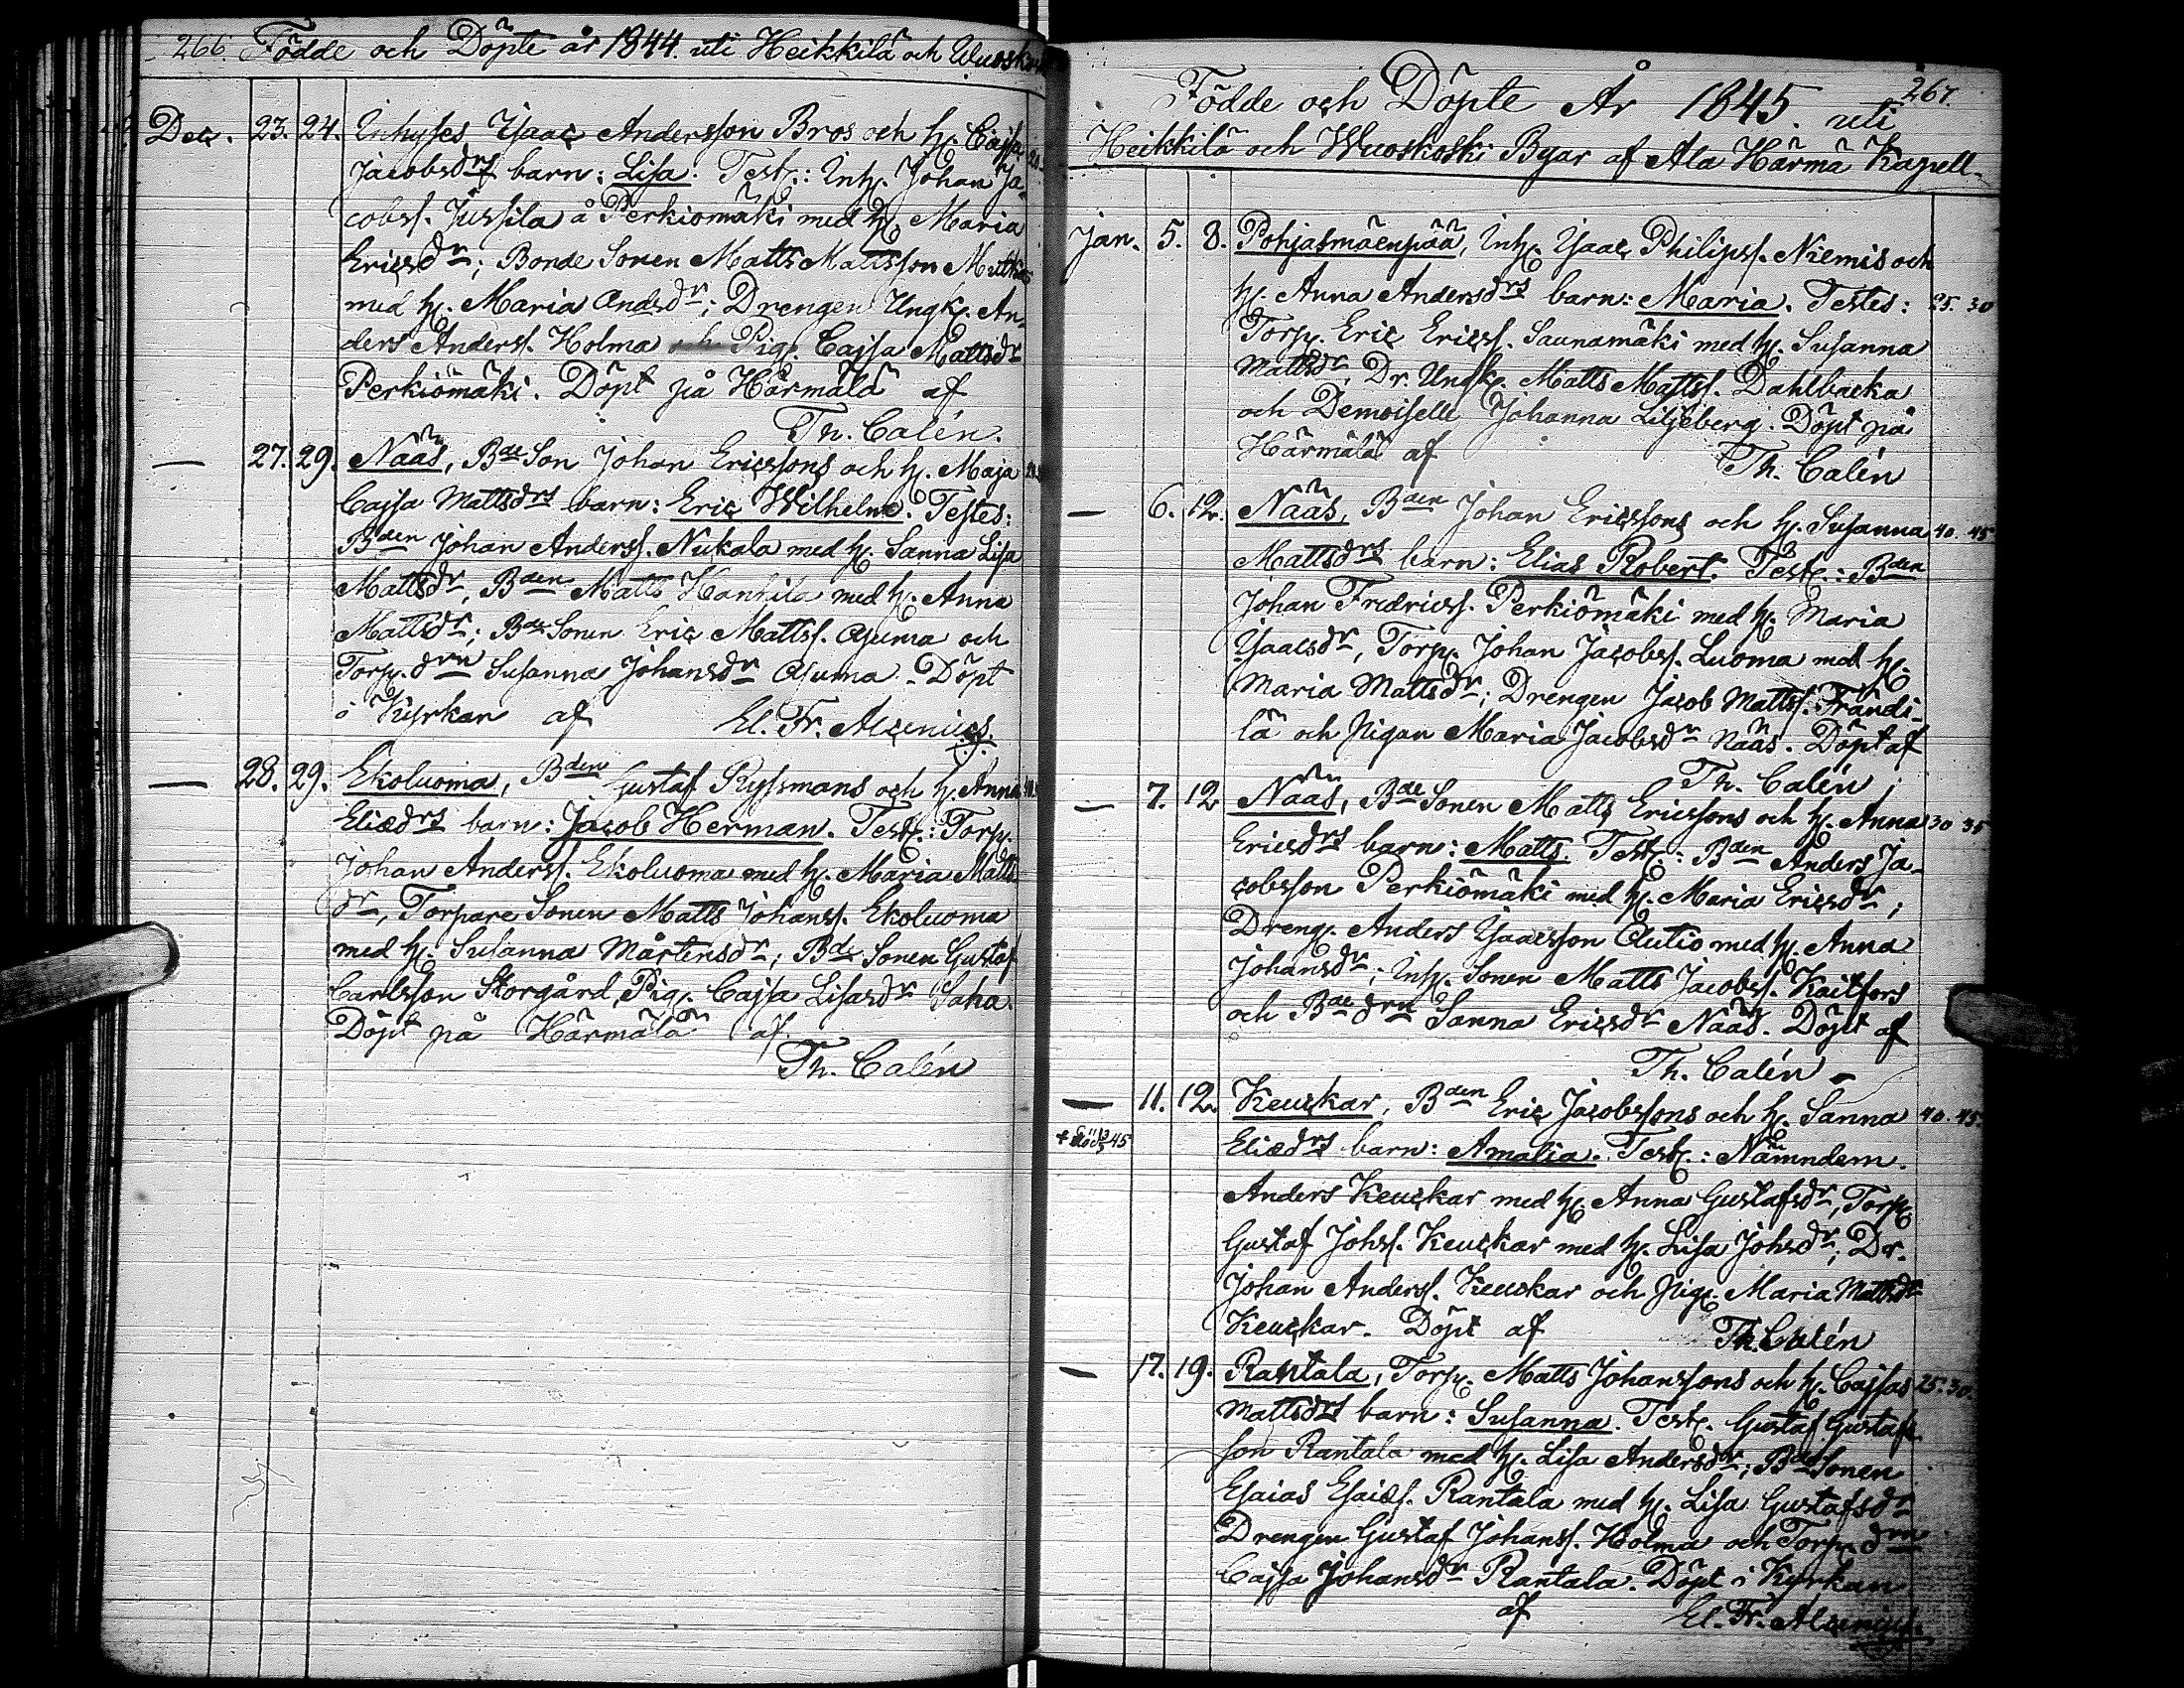 266. Födde och Döpte år 1844. uti Heikkilä och Wuosko
Dec. 23. 24. Inhyses Isaac Andersson Bros och h. Cajsa
Jacobsdrs barn: Lisa. Test.: Inh. Johan Ja-
cobss. Jussila å Perkiomäki med h. Maria
Ericsdr; Bonde Sonen Matts Mattsson
med h. Maria Andsdr; Drengen Ungk. An-
ders Anderss. Holma och Pig. Cajsa Mattsdr
Perkiömäki. Döpt på Härmälä af
Th. Calén.
— 27. 29. Nääs, Bde Son Johan Ericssons och h. Maja
Cajsa Mattsdrs barn: Eric Wilhelm. Testes:
Bden Johan Anderss. Nukala med h. Sanna Lisa
Mattsdr, Bden Matts Hanhila med h. Anna
Mattsdr; Bde Sonen Eric Mattss. Ojuma och
Torp. drn Susanna Johansdr Ojuma. Döpt
i Kyrkan af El. Fr. Alcenius.
— 28. 29. Ekoluoma, Bden Gustaf Ryssmans och h. Anna
Eliædrs barn: Jacob Herman. Test.: Torp.
Johan Anderss. Ekoluoma med h. Maria Matts
dr, Torpare Sonen Matts Johanss. Ekoluoma
med h. Susanna Mårtensdr; Bde Sonen Gustaf
Carlsson Storgård, Pig. Cajsa Lisasdr Saha.
Döpt på Härmälä af
Th. Calén
267.
Födde och Döpte År 1845. uti
Heikkilä och Wuoskoski Byar af Ala Härmä Kapell.
Jan. 5. 8. Pohjasmäenpää, Inh. Isaac Philipss. Niemis och
h. Anna Andersdrs barn: Maria. Testes: 25. 30
Torp. Eric Ericss. Saunamäki med h. Susanna
Mattsdr, Dr. Ungk. Matts Mattss. Dahlbacka
och Demoiselle Johanna Liljeberg. Döpt på
Härmälä af Th. Calén
— 6. 12. Nääs, Bden Johan Ericssons och h. Susanna 40. 45
Mattsdrs barn: Elias Robert. Test.: Bden
Johan Fredricss. Perkiömäki med h. Maria
Isaacsdr, Torp. Johan Jacobss. Luoma med h.
Maria Mattsdr; Drengen Jacob Mattss. Frändi-
lä och Pigan Maria Jacobsdr Nääs. Döpt af
Th. Calén;
— 7. 12 Nääs, Bde Sonen Matts Ericssons och h. Anna 30 35
Ericsdrs barn: Matts. Test.: Bden Anders Ja-
cobsson Perkiömäki med h. Maria Ericsdr;
Dreng. Anders Isaacsson Autio med h. Anna
Johansdr; Inh. Sonen Matts Jacobss. Kaitfors
och Bde drn Sanna Ericsdr Nääs. Döpt af
Th. Calén
— 11. 12. Keuckar, Bden Eric Jacobssons och h. Sanna 40. 45.
Eliædrs barn: Amalia. Test.: Nämndem.
Anders Keuckar med h. Anna Gustafsdr, Torp.
Gustaf Johss. Keuckar med h. Lisa Johsdr; Dr.
Johan Anderss. Keuckar och Pig. Maria Mattsdr
Keuckar. Döpt af Th. Calén
— 17. 19. Rantala, Torp. Matts Johanssons och h. Cajsas 25. 30.
Mattsdrs barn: Susanna. Test. Gustaf Gustafs
son Rantala med h. Lisa Andersdr; Bde Sonen
Esaias Esaiæs. Rantala med h. Lisa Gustafsdr
Drengen Gustaf Johanss. Holma och Torp. drn
Cajsa Johansdr Rantala. Döpt i Kyrkan
af El. Fr. Alcenius.